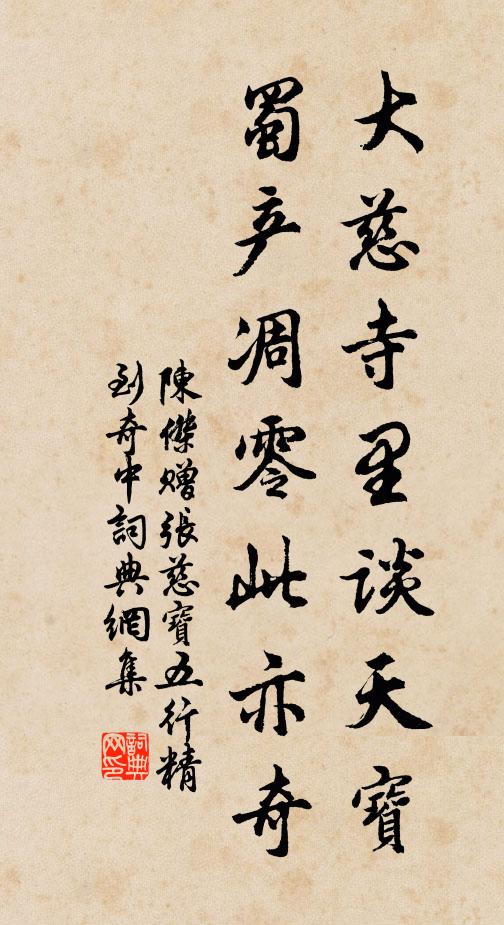 大慈寺里談天寶
蜀产凋零此亦奇
陳傑贈張慈寶五行精
到奇中詞典網集
詞典网印